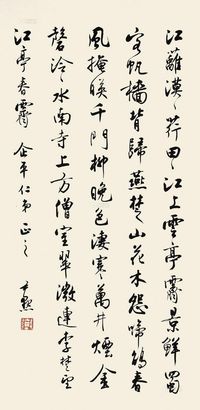 江蘺漠漠荇田田江上雲亭霽景鮮蜀
客帆檣背歸燕楚山花木怨啼鵑春
風掩映千門柳晚色淒涼萬井煙金
磬泠泠水南寺上方僧室翠微連李楚望
江亭春霽 企平仁弟正之
尹默